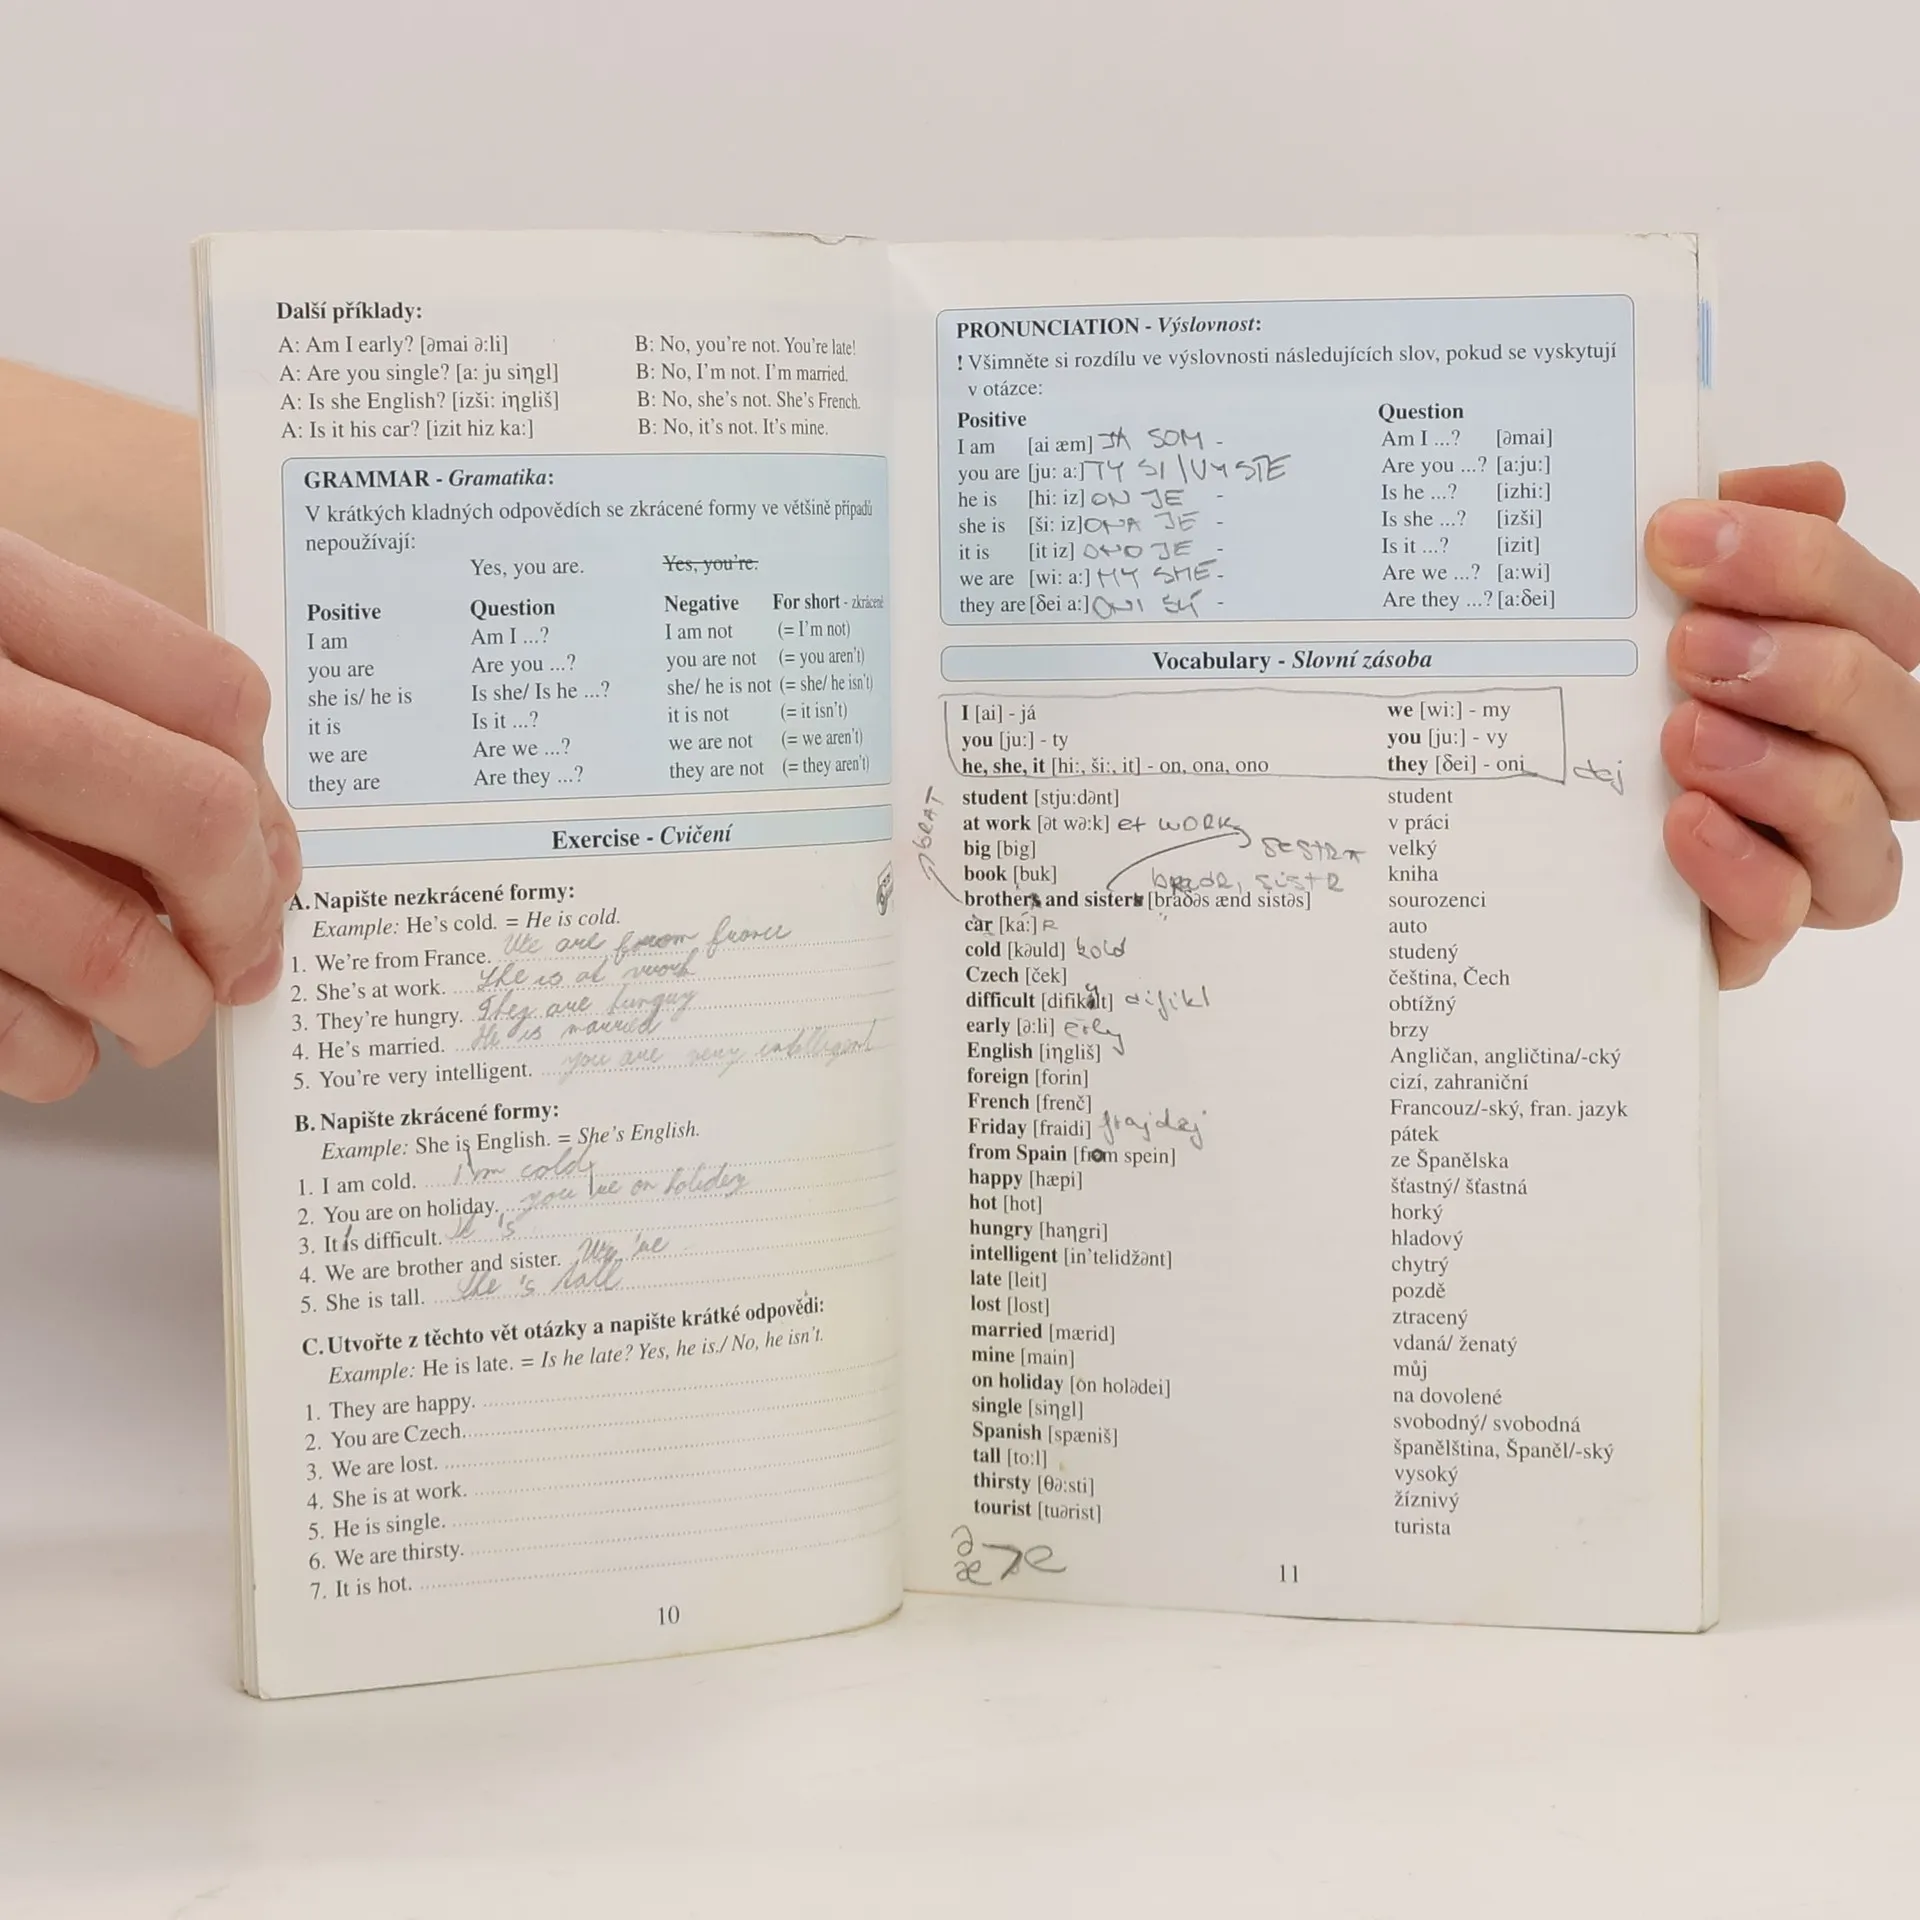 Další příklady:
A: Am I early? [əmai ə:li] B: No, you're not. You're late!
A: Are you single? [a: ju siŋgl] B: No, I'm not. I'm married.
A: Is she English? [izši: iŋgliš] B: No, she's not. She's French.
A: Is it his car? [izit hiz ka:] B: No, it's not. It's mine.
GRAMMAR - Gramatika:
V krátkých kladných odpovědích se zkrácené formy ve většině případů
nepoužívají:
Yes, you are. Yes, you're.
Positive Question Negative For short - zkráceně
I am Am I ...? I am not (= I'm not)
you are Are you ...? you are not (= you aren't)
she is/ he is Is she/ Is he ...? she/ he is not (= she/ he isn't)
it is Is it ...? it is not (= it isn't)
we are Are we ...? we are not (= we aren't)
they are Are they ...? they are not (= they aren't)
Exercise - Cvičení
A. Napište nezkrácené formy:
Example: He's cold. = He is cold.
1. We're from France. We are from France
2. She's at work. She is at work
3. They're hungry. They are hungry
4. He's married. He is married
5. You're very intelligent. you are very intelligent
B. Napište zkrácené formy:
Example: She is English. = She's English.
1. I am cold. I'm cold
2. You are on holiday. you're on holiday
3. It is difficult. It 's
4. We are brother and sister. We 're
5. She is tall. She 's tall
C. Utvořte z těchto vět otázky a napište krátké odpovědi:
Example: He is late. = Is he late? Yes, he is./ No, he isn't.
1. They are happy.
2. You are Czech.
3. We are lost.
4. She is at work.
5. He is single.
6. We are thirsty.
7. It is hot.
10
PRONUNCIATION - Výslovnost:
! Všimněte si rozdílu ve výslovnosti následujících slov, pokud se vyskytují
v otázce:
Positive Question
I am [ai æm] JA SOM - Am I ...? [əmai]
you are [ju: a:] TY SI /VY STE Are you ...? [a:ju:]
he is [hi: iz] ON JE - Is he ...? [izhi:]
she is [ši: iz] ONA JE - Is she ...? [izši]
it is [it iz] ONO JE - Is it ...? [izit]
we are [wi: a:] MY SME - Are we ...? [a:wi]
they are [δei a:] ONI SÚ - Are they ...? [a:δei]
Vocabulary - Slovní zásoba
I [ai] - já we [wi:] - my
you [ju:] - ty you [ju:] - vy
he, she, it [hi:, ši:, it] - on, ona, ono they [δei] - oni dej
BRAT
student [stju:dənt] student
at work [ət wə:k] et WORK v práci
big [big] SESTRA velký
book [buk] kniha
brothers and sisters [braδəs ænd sistəs] sourozenci
car [ká:] R auto
cold [kəuld] kold studený
Czech [ček] čeština, Čech
difficult [difikəlt] difikl obtížný
early [ə:li] erly brzy
English [iŋgliš] Angličan, angličtina/-cký
foreign [forin] cizí, zahraniční
French [frenč] Francouz/-ský, fran. jazyk
Friday [fraidi] frajdej pátek
from Spain [from spein] ze Španělska
happy [hæpi] šťastný/ šťastná
hot [hot] horký
hungry [haŋgri] hladový
intelligent [in'telidžənt] chytrý
late [leit] pozdě
lost [lost] ztracený
married [mærid] vdaná/ ženatý
mine [main] můj
on holiday [on holədei] na dovolené
single [siŋgl] svobodný/ svobodná
Spanish [spæniš] španělština, Španěl/-ský
tall [to:l] vysoký
thirsty [θə:sti] žíznivý
tourist [tuərist] turista
ə
æ > e
11